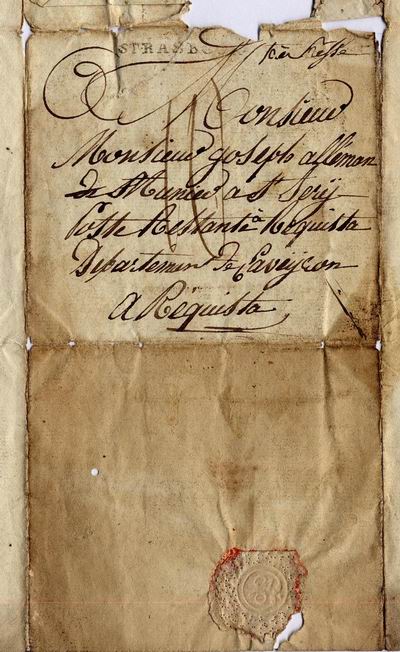 STRASBO
Monsieur
Monsieur joseph alleman
de St a St
poste Restante a Requista
Departemen de Laveyron
a Réquista